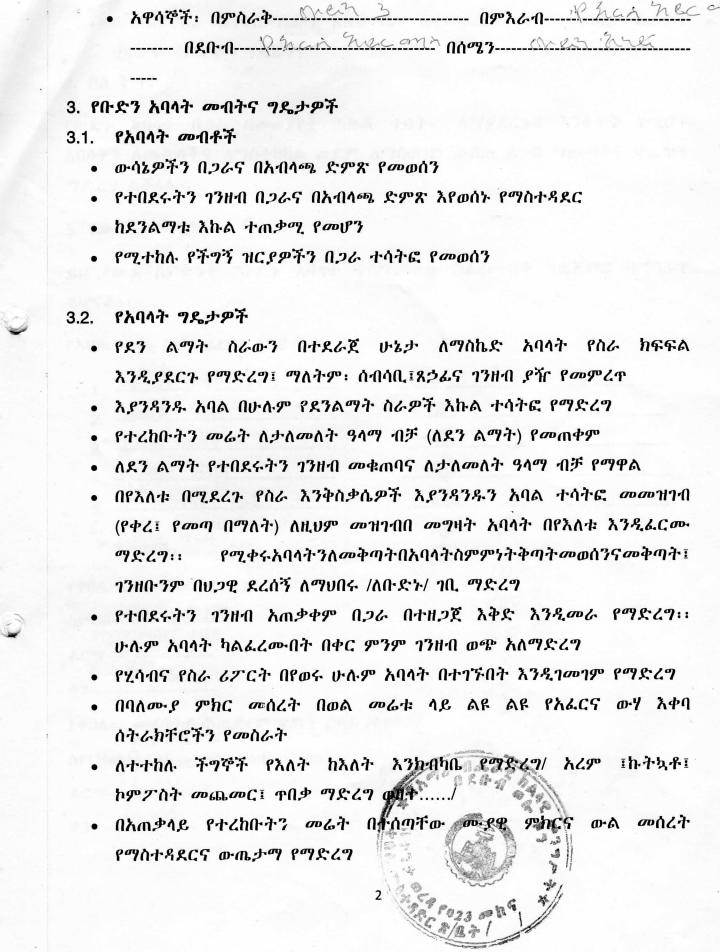 • አዋሳኞች፡ በምስራቅ---------------------------- በምእራብ---------------------
-------- በደቡብ---------------------------- በሰሜን----------------------------
-----
3. የቡድን አባላት መብትና ግዴታዎች
3.1. የአባላት መብቶች
• ውሳኔዎችን በጋራና በአብላጫ ድምጽ የመወሰን
• የተበደሩትን ገንዘብ በጋራና በአብላጫ ድምጽ እየወሰኑ የማስተዳደር
• ከደንልማቱ እኩል ተጠቃሚ የመሆን
• የሚተከሉ የችግኝ ዝርያዎችን በጋራ ተሳትፎ የመወሰን
3.2. የአባላት ግዴታዎች
• የደን ልማት ስራውን በተደራጀ ሁኔታ ለማስኬድ አባላት የስራ ክፍፍል
እንዲያደርጉ የማድረግ፤ ማለትም፡ ሰብሳቢ፤ጸኃፊና ገንዘብ ያዥ የመምረጥ
• እያንዳንዱ አባል በሁሉም የደንልማት ስራዎች እኩል ተሳትፎ የማድረግ
• የተረከቡትን መሬት ለታለመለት ዓላማ ብቻ (ለደን ልማት) የመጠቀም
• ለደን ልማት የተበደሩትን ገንዘብ መቁጠባና ለታለመለት ዓላማ ብቻ የማዋል
• በየእለቱ በሚደረጉ የስራ እንቅስቃሴዎች እያንዳንዱን አባል ተሳትፎ መመዝገብ
(የቀረ፤ የመጣ በማለት) ለዚህም መዝገብበ መግዛት አባላት በየእለቱ እንዲፈርሙ
ማድረግ፡፡ የሚቀሩአባላትንለመቅጣትበአባላትስምምነትቅጣትመወሰንናመቅጣት፤
ገንዘቡንም በህጋዊ ደረሰኝ ለማህበሩ /ለቡድኑ/ ገቢ ማድረግ
• የተበደሩትን ገንዘብ አጠቃቀም በጋራ በተዘጋጀ እቅድ እንዲመራ የማድረግ፡፡
ሁሉም አባላት ካልፈረሙበት በቀር ምንም ገንዘብ ወጭ አለማድረግ
• የሂሳብና የስራ ሪፖርት በየወሩ ሁሉም አባላት በተገኙበት እንዲገመገም የማድረግ
• በባለሙያ ምክር መሰረት በወል መሬቱ ላይ ልዩ ልዩ የአፈርና ውሃ እቀባ
ሰትራክቸሮችን የመስራት
• ለተተከሉ ችግኞች የእለት ከእለት እንክብካቤ የማድረግ/ አረም ፤ኩትኳቶ፤
ኮምፖስት መጨመር፤ ጥበቃ ማድረግ ወዘተ....../
• በአጠቃላይ የተረከቡትን መሬት በተሰጣቸው ሙያዊ ምክርና ውል መሰረት
የማስተዳደርና ውጤታማ የማድረግ
2